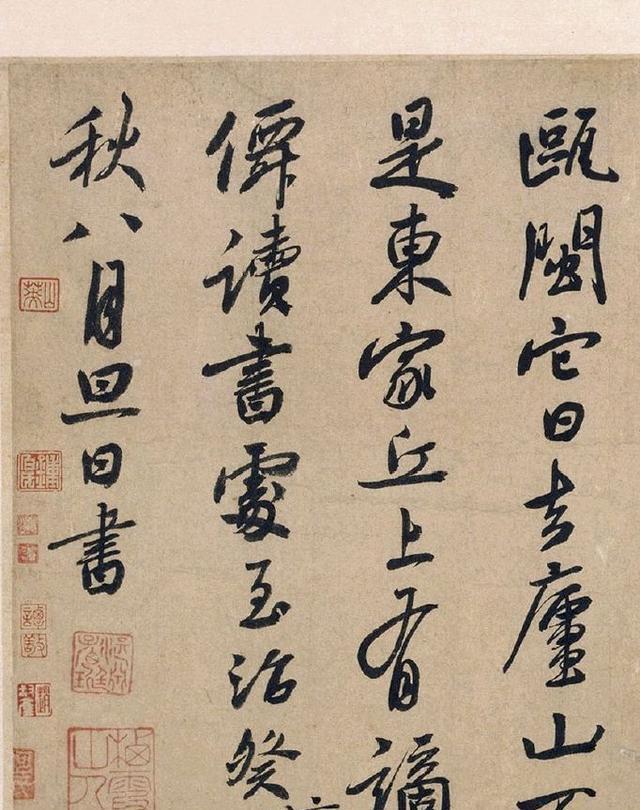 甌閩它日去廬山
是東家丘上有謫
僊讀書處至治癸
秋八月旦日書
譚敬